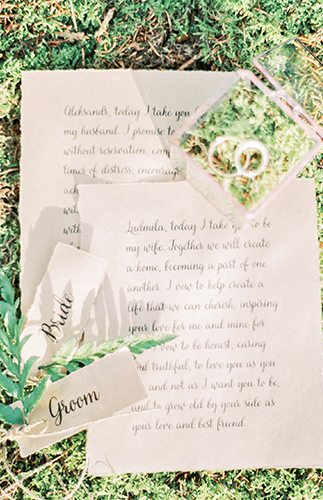 Aleksandr, today I take you
my husband. I promise to
without reservation, com
times of distress, encourage
ach
wit
with
Ludmila, today I take you to be
my wife. Together we will create
a home, becoming a part of one
another. I vow to help create a
life that we can cherish, inspiring
your love for me and mine for
vow to be honest, caring
and truthful, to love you as you
and not as I want you to be,
and to grow old by your side as
your love and best friend.
Bride
Groom